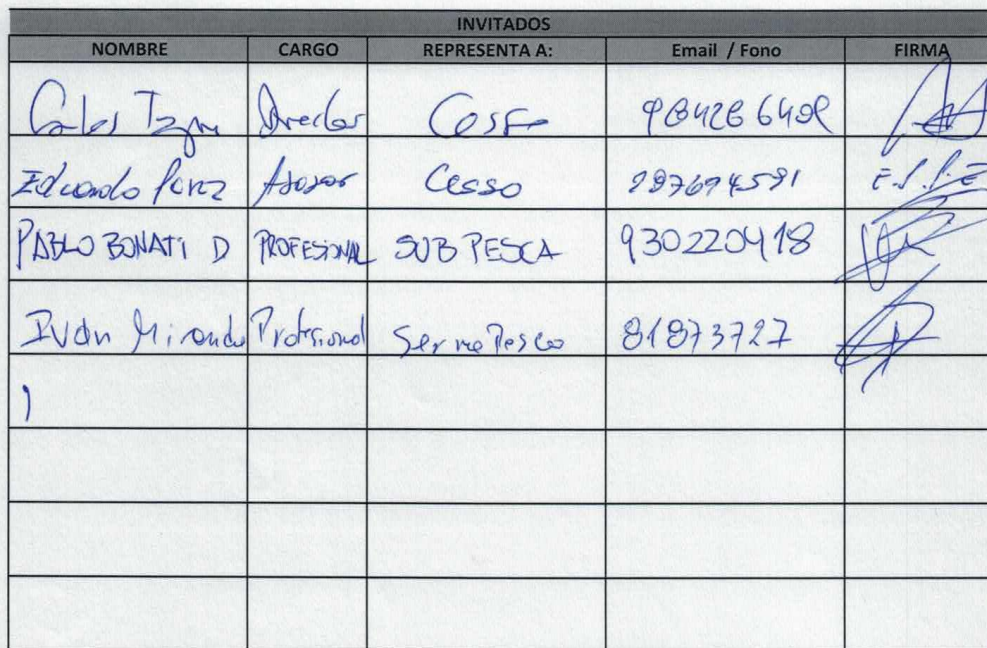 INVITADOS
NOMBRE CARGO REPRESENTA A: Email / Fono FIRMA
Carlos Director
Eduardo Asesor Cesso
PABLO BONATI D PROFESIONAL SUBPESCA 930220418
Iván Miranda Profesional Sernapesca 81873727